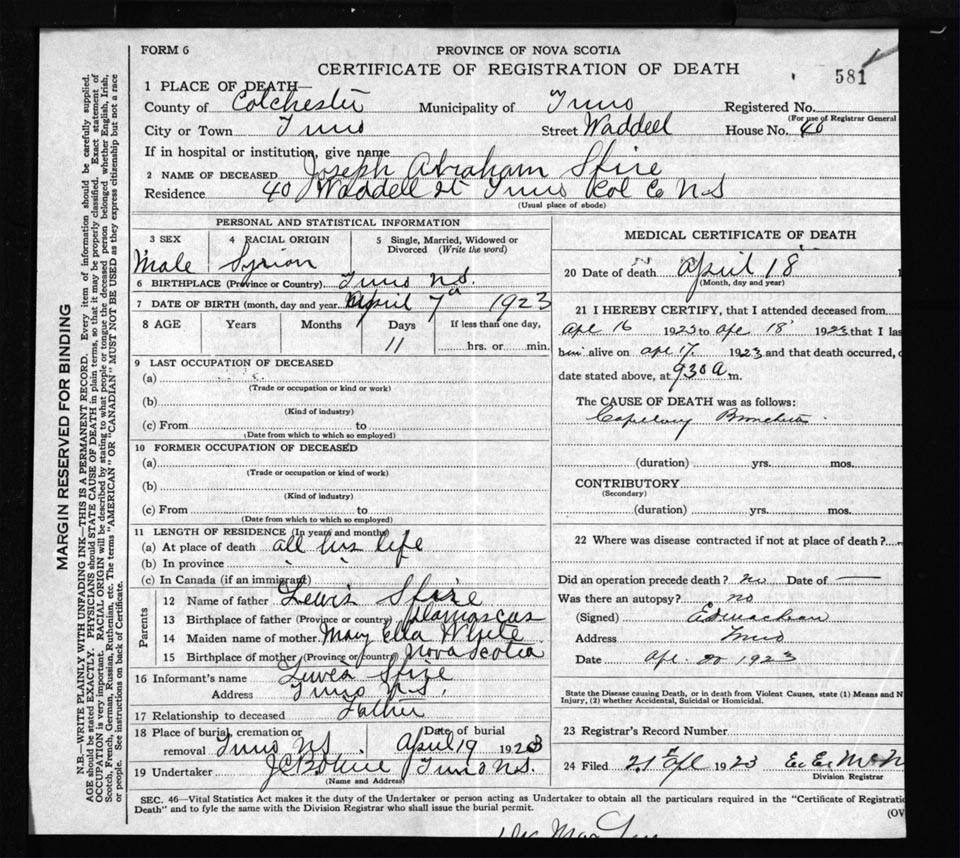 FORM 6
PROVINCE OF NOVA SCOTIA
CERTIFICATE OF REGISTRATION OF DEATH
581
1 PLACE OF DEATH—
County of Colchester Municipality of Truro Registered No.
(For use of Registrar General
City or Town Truro Street Waddell House No. 40
If in hospital or institution, give name
2 NAME OF DECEASED Joseph Abraham Sfire
Residence 40 Waddell St Truro Col Co N.S
(Usual place of abode)
PERSONAL AND STATISTICAL INFORMATION
3 SEX 4 RACIAL ORIGIN 5 Single, Married, Widowed or
Divorced (Write the word)
Male Syrian
6 BIRTHPLACE (Province or Country) Truro N.S.
7 DATE OF BIRTH (month, day and year) April 7th 1923
8 AGE Years Months Days If less than one day,
11 hrs. or min.
9 LAST OCCUPATION OF DECEASED
(a)
(Trade or occupation or kind or work)
(b)
(Kind of industry)
(c) From to
(Date from which to which so employed)
10 FORMER OCCUPATION OF DECEASED
(a)
(Trade or occupation or kind of work)
(b)
(Kind of industry)
(c) From to
(Date from which to which so employed)
11 LENGTH OF RESIDENCE (In years and months)
(a) At place of death all his life
(b) In province
(c) In Canada (if an immigrant)
Parents
12 Name of father Lewis Sfire
13 Birthplace of father (Province or country) Damascus
14 Maiden name of mother Mary Ella White
15 Birthplace of mother (Province or country) Nova Scotia
16 Informant's name Sfire
Address Truro N.S.
17 Relationship to deceased Father
18 Place of burial, cremation or Date of burial
removal Truro N.S. April 19 1923
19 Undertaker Truro N.S.
(Name and Address)
MEDICAL CERTIFICATE OF DEATH
20 Date of death April 18
(Month, day and year)
21 I HEREBY CERTIFY, that I attended deceased from
Apr 16 1923 to apr 18 1923 that I las
him alive on apr 17. 1923 and that death occurred, o
date stated above, at 930 a m.
The CAUSE OF DEATH was as follows:
Capillary Bronchitis
(duration) yrs. mos.
CONTRIBUTORY
(Secondary)
(duration) yrs. mos.
22 Where was disease contracted if not at place of death?
Did an operation precede death? no Date of —
Was there an autopsy? no
(Signed)
Address Truro
Date apr. 20 1923
State the Disease causing Death, or in death from Violent Causes, state (1) Means and N
Injury, (2) whether Accidental, Suicidal or Homicidal.
23 Registrar's Record Number
24 Filed 21 Apl 1923
Division Registrar
SEC. 46—Vital Statistics Act makes it the duty of the Undertaker or person acting as Undertaker to obtain all the particulars required in the "Certificate of Registratio
Death" and to fyle the same with the Division Registrar who shall issue the burial permit.
(OV
MARGIN RESERVED FOR BINDING
N.B.—WRITE PLAINLY WITH UNFADING INK—THIS IS A PERMANENT RECORD. Every item of information should be carefully supplied.
AGE should be stated EXACTLY. PHYSICIANS should STATE CAUSE OF DEATH in plain terms, so that it may be properly classified. Exact statement of
OCCUPATION is very important. RACIAL ORIGIN will be described by stating to what people or tongue the deceased person belonged whether English, Irish,
Scotch, French, German, Russian, Ruthenian, etc. The terms "AMERICAN" OR "CANADIAN" MUST NOT BE USED as they express citizenship but not a race
or people. See instructions on back of Certificate.